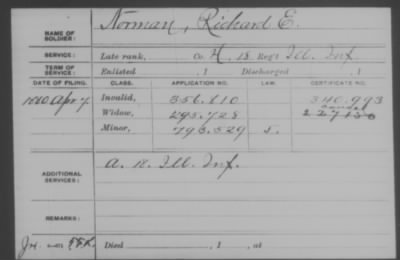 NAME OF SOLDIER: Norman, Richard E.
SERVICE: Late rank, Co. H, 18 Reg't Ill. Inf.
TERM OF SERVICE: Enlisted , 1 Discharged , 1
DATE OF FILING. CLASS. APPLICATION NO. LAW. CERTIFICATE NO.
1880 Apr 7. Invalid, 356.110 340.993
Widow, 295.728
Minor, 793.529 S.
ADDITIONAL SERVICES: A. 18. Ill. Inf.
REMARKS:
Died , 1 , at